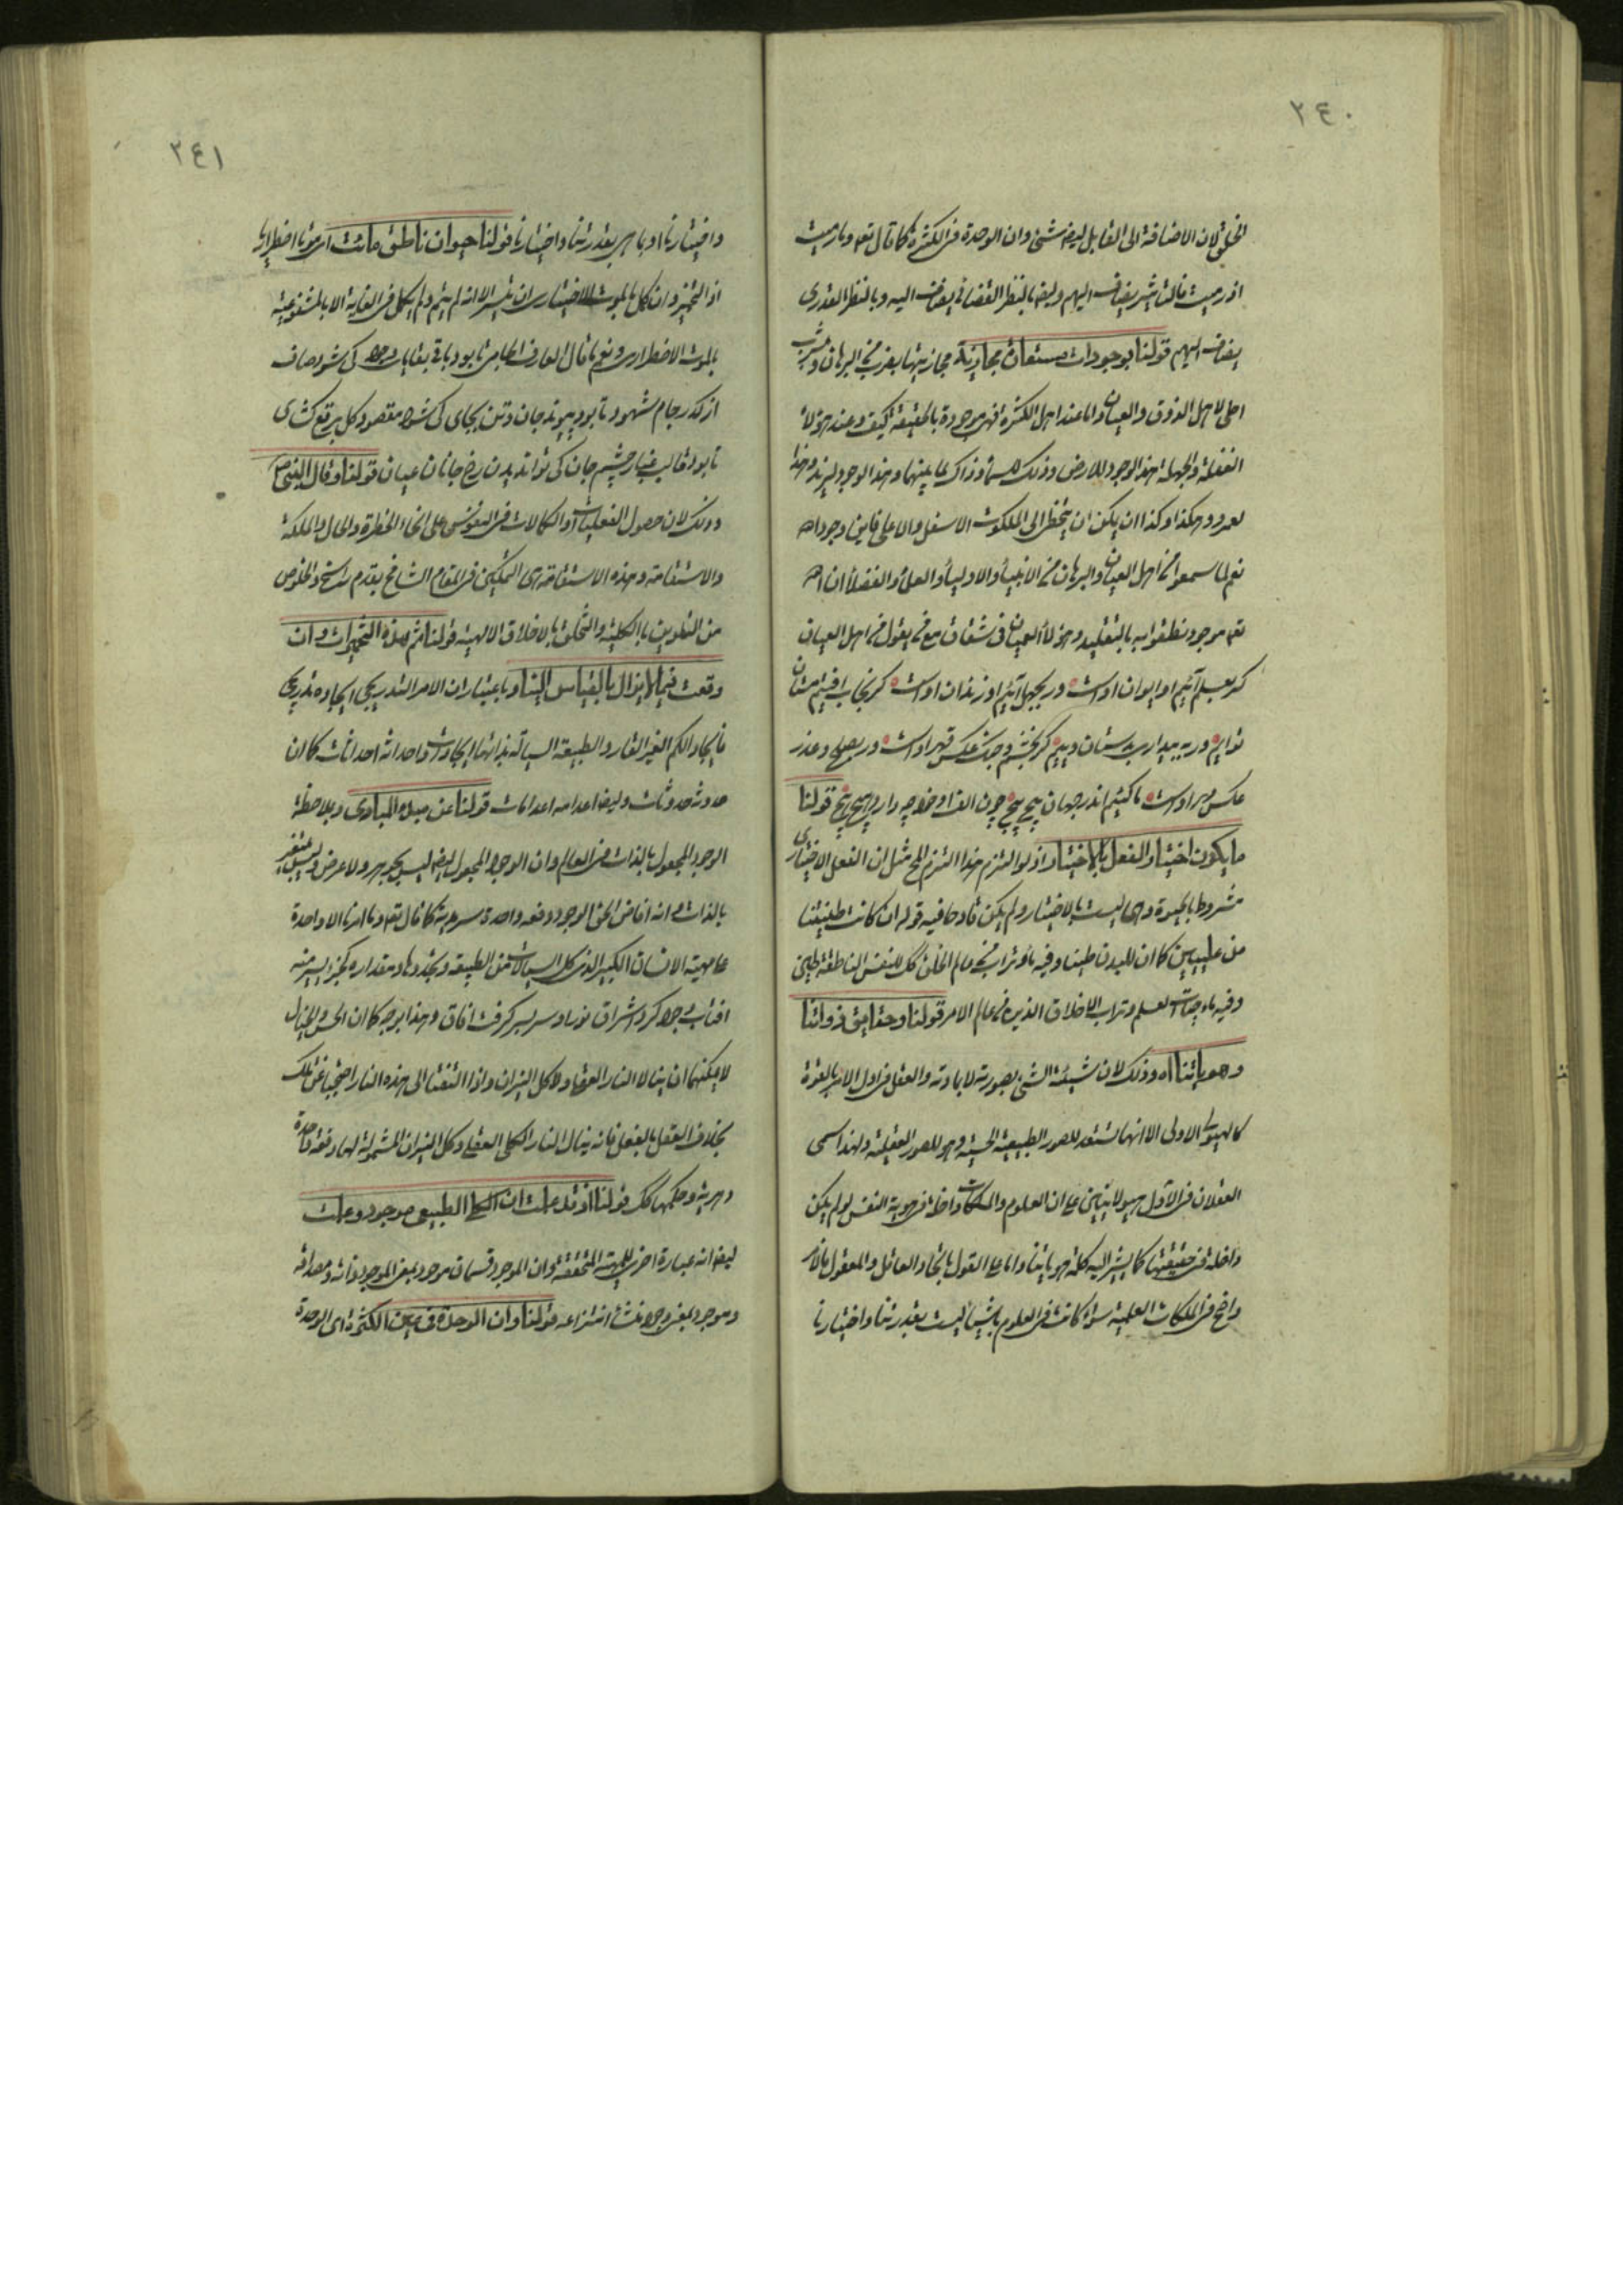 ٢٤٠
الخلق لان الاضافة الى القابل ايضا شیء وان الوحدة فى الكثرة كما قال تعه وما رميت
اذ رميت فالتاثير يضاف اليهم وايضا بالنظر القضائى يضاف اليه وبالنظر القدرى
يضاف اليهم قولنا بوجودات مستعارة مجازية مجازيتها بضرب من البرهان ومشرب
احلى لاهل الذوق والعيان واما عند اهل الكثرة فهى موجودة بالحقيقة كيف وعند هؤلاء
الغفلة والجهلة هذا الوجود للارض وذلك للسماء وذاك لما بينهما وهذا الوجود لزيد وهذا
لعمرو وهكذا وكذا ان يكن ان يتخطى الى الملكوت الاسفل والاعلى فاين وجود الله
نعم لما سمعوا من اهل العيان والبرهان من الانبياء والاولياء والعلماء والفضلاء ان الله
تعه موجود نطقوا به بالتقليد وهؤلاء العميان فى شقاق مع من يقول من اهل العيان
كر بعلم آئيم او ايوان اوست ور بجهل آئيم او زندان اوست كر بخواب افتيم مستان
توايم ور به بيدارى بدستان ويیم كر بخشم وجنك عكس قهر اوست ور بصلح وعذر
عكس مهر اوست ما كئيم اندر جهان پيچ پيچ چون الف او خود چه دارد هيچ هيچ قولنا
ما يكون اختيار الفعل بالاختيار اذ لو التزم هذا التزم الخ مثل ان الفعل الاختيارى
مشروط بالحيوة وهى ليست بالاختيار ولم يكن قادحا فيه قوله ان كانت طينتنا
من عليين كما ان للبدن طينا وفيه ماء وتراب من عالم الخلق كك للنفس الناطقة طين
وفيه ماء حيات العلم وتراب الاخلاق الذين من عالم الامر قولنا وحقايق ذواتنا
وهوياتنا اه وذلك لان شيئية الشیء بصورته لا بمادته والعقل فى اول الامر بالقوة
كالهيولى الاولى الا انها تستعد للصور الطبيعية الحسية وهو للصور العقلية ولهذا سمى
العقلان فى الاول هيولانيين على ان العلوم والملكات داخلة فى هوية النفس لو لم يكن
داخلة فى حقيقتها كما يشير اليه كلمة هوياتنا واما على القول باتحاد العاقل والمعقول فالامر
واضح فى الملكات العلمية سواء كانت فى العلوم باشياء ليست بقدرتنا واختيارنا
٢٤١
واختيارنا او بما هى بقدرتنا واختيارنا قولنا حيوان ناطق مائت اى موتا اضطراريا
اذ التحيز وان كمل بالموت الاختيارى ان تيسر الا انه لم يتم ولم يكمل فى الغاية الا بالمشفوعية
بالموت الاضطرارى ونعم ما قال العارف الجامى تا بود باقى بقاياى وجود كى شود صاف
از كدر جام شهود تا بود پيوند جان وتن بجاى كى شود مقصود كل برقع كشاى
تا بود قالب غبار چشم جان كى تواند ديدن رخ جانان عيان قولنا وقال النبى ص
وذلك لان حصول الفعليات والكمالات فى النفوس على انحاء الخطرة والحال والملكة
والاستقامة وهذه الاستقامة هى التمكين فى المقام الشامخ بقدم راسخ والخلوص
من التلوين بالكلية والتخلق بالاخلاق الالهية قولنا ثم هذه التخميرات وان
وقعت فيما لا يزال بالقياس الينا وباعتبار ان الامر التدريجى ايجاده تدريجى
فايجاد الكم الغير القار والطبيعة السيالة بذاتها ايجادات واحداثه احداثات كما ان
حدوثه حدوثات وايضا اعدامه اعدامات قولنا عن مبدء المبادى وبملاحظة
الوجود المجعول بالذات فى العالم وان الوجود المجعول ايضا ليس بجوهر ولا عرض وليس بمتغير
بالذات وانه افاض الحق الوجود دفعة واحدة سرمدية كما قال تعه وما امرنا الا واحدة
على مهية الانسان الكبير الذى كل السيالات من الطبيعة وتجددها ومقداره كجزء يسير منه
افتاب وجود كرد اشراق نور او سر بسر كرفت افاق وهذا بوجه كما ان الحس والخيال
لا يمكنهما ان ينالا النار العقلى ولا كل النيران واذا التفتا الى هذه النار احتجبا عن تلك
بخلاف العقل بالفعل فانه ينال النار الكلى العقلى وكل النيران المشمولة لها دفعة واحدة
دهرية وحكمها كك قولنا اذ قد علمت ان الكلى الطبيعى موجود وعلمت
ايضا انه عبارة اخرى للمهية المتحققة وان الموجود قسمان موجود بمعنى الموجود ذاته ومصداقه
وموجود بمعنى وجود منشأ انتزاعه قولنا وان الوحدة فى عين الكثرة اى الوحدة